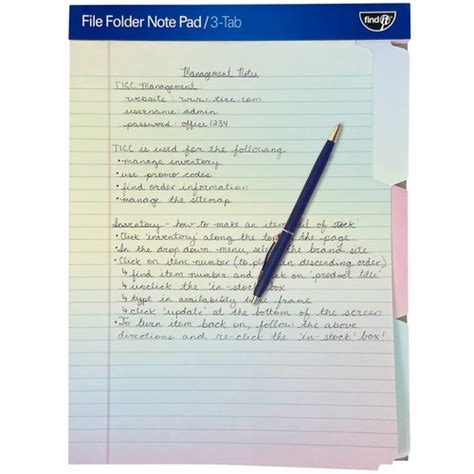 File Folder Note Pad / 3-Tab
find it
Management Notes
TICC Management:
website: www.ticc.com
username: admin
password: office1234
TICC is used for the following:
• manage inventory
• use promo codes
• find order information
• manage the sitemap
Inventory - how to make an item out of stock
• Click 'inventory' along the top of the page
• In the drop down menu, select the brand site
• Click on item number (to put in descending order)
↳ find item number and click on 'product title'
↳ unclick the 'in-stock' box
↳ type in availability time frame
↳ click 'update' at the bottom of the screen
• To turn item back on, follow the above
directions and re-click the 'in-stock' box!